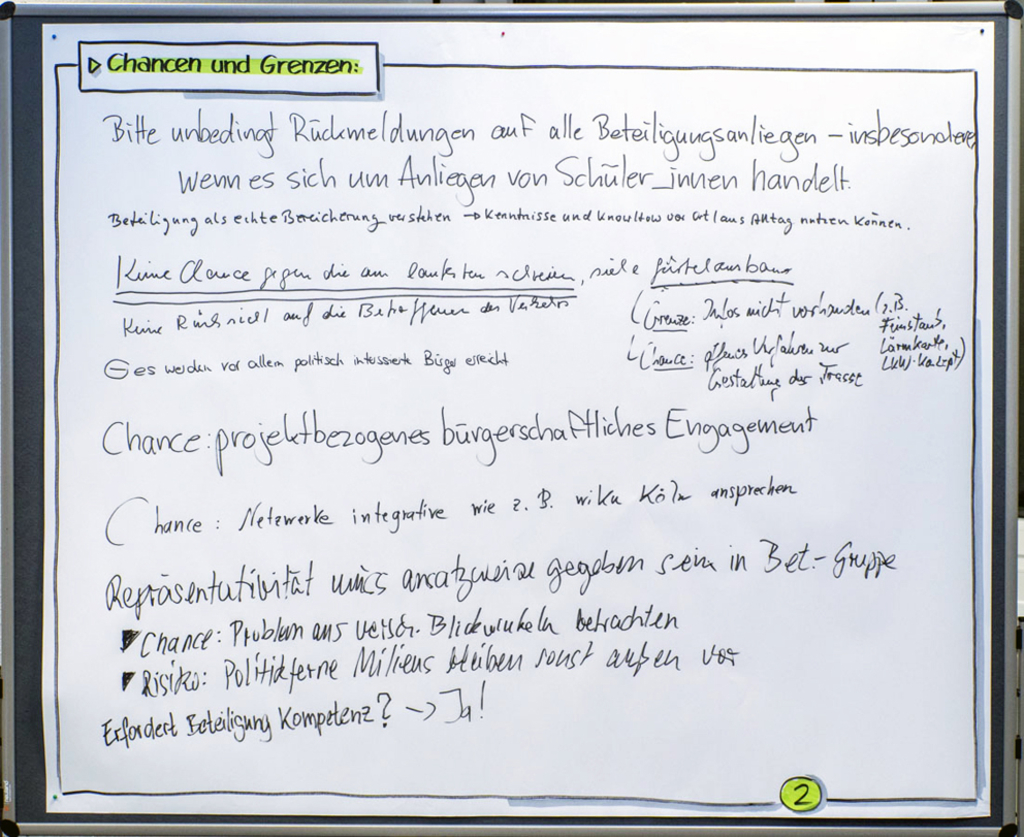 Chancen und Grenzen:
Bitte unbedingt Rückmeldungen auf alle Beteiligungsanliegen – insbesondere,
wenn es sich um Anliegen von Schüler_innen handelt.
Beteiligung als echte Bereicherung verstehen → Kenntnisse und KnowHow vor Ort / aus Alltag nutzen können.
Keine Chance gegen die am lautesten schreien, siehe Gürtelausbau
Keine Rücksicht auf die Betroffenen des Verkehrs
Grenze: Infos nicht vorhanden (z.B.
Feinstaub,
Lärmkarte,
LKW-Konzept)
Chance: offenes Verfahren zur
Gestaltung der Trasse
⊖ es werden vor allem politisch interessierte Bürger erreicht
Chance: projektbezogenes bürgerschaftliches Engagement
Chance: Netzwerke integrative wie z.B. wiku Köln ansprechen
Repräsentativität muss ansatzweise gegeben sein in Bet.-Gruppe
Chance: Problem aus versch. Blickwinkeln betrachten
Risiko: Politikferne Milieus bleiben sonst außen vor
Erfordert Beteiligung Kompetenz? → Ja!
2